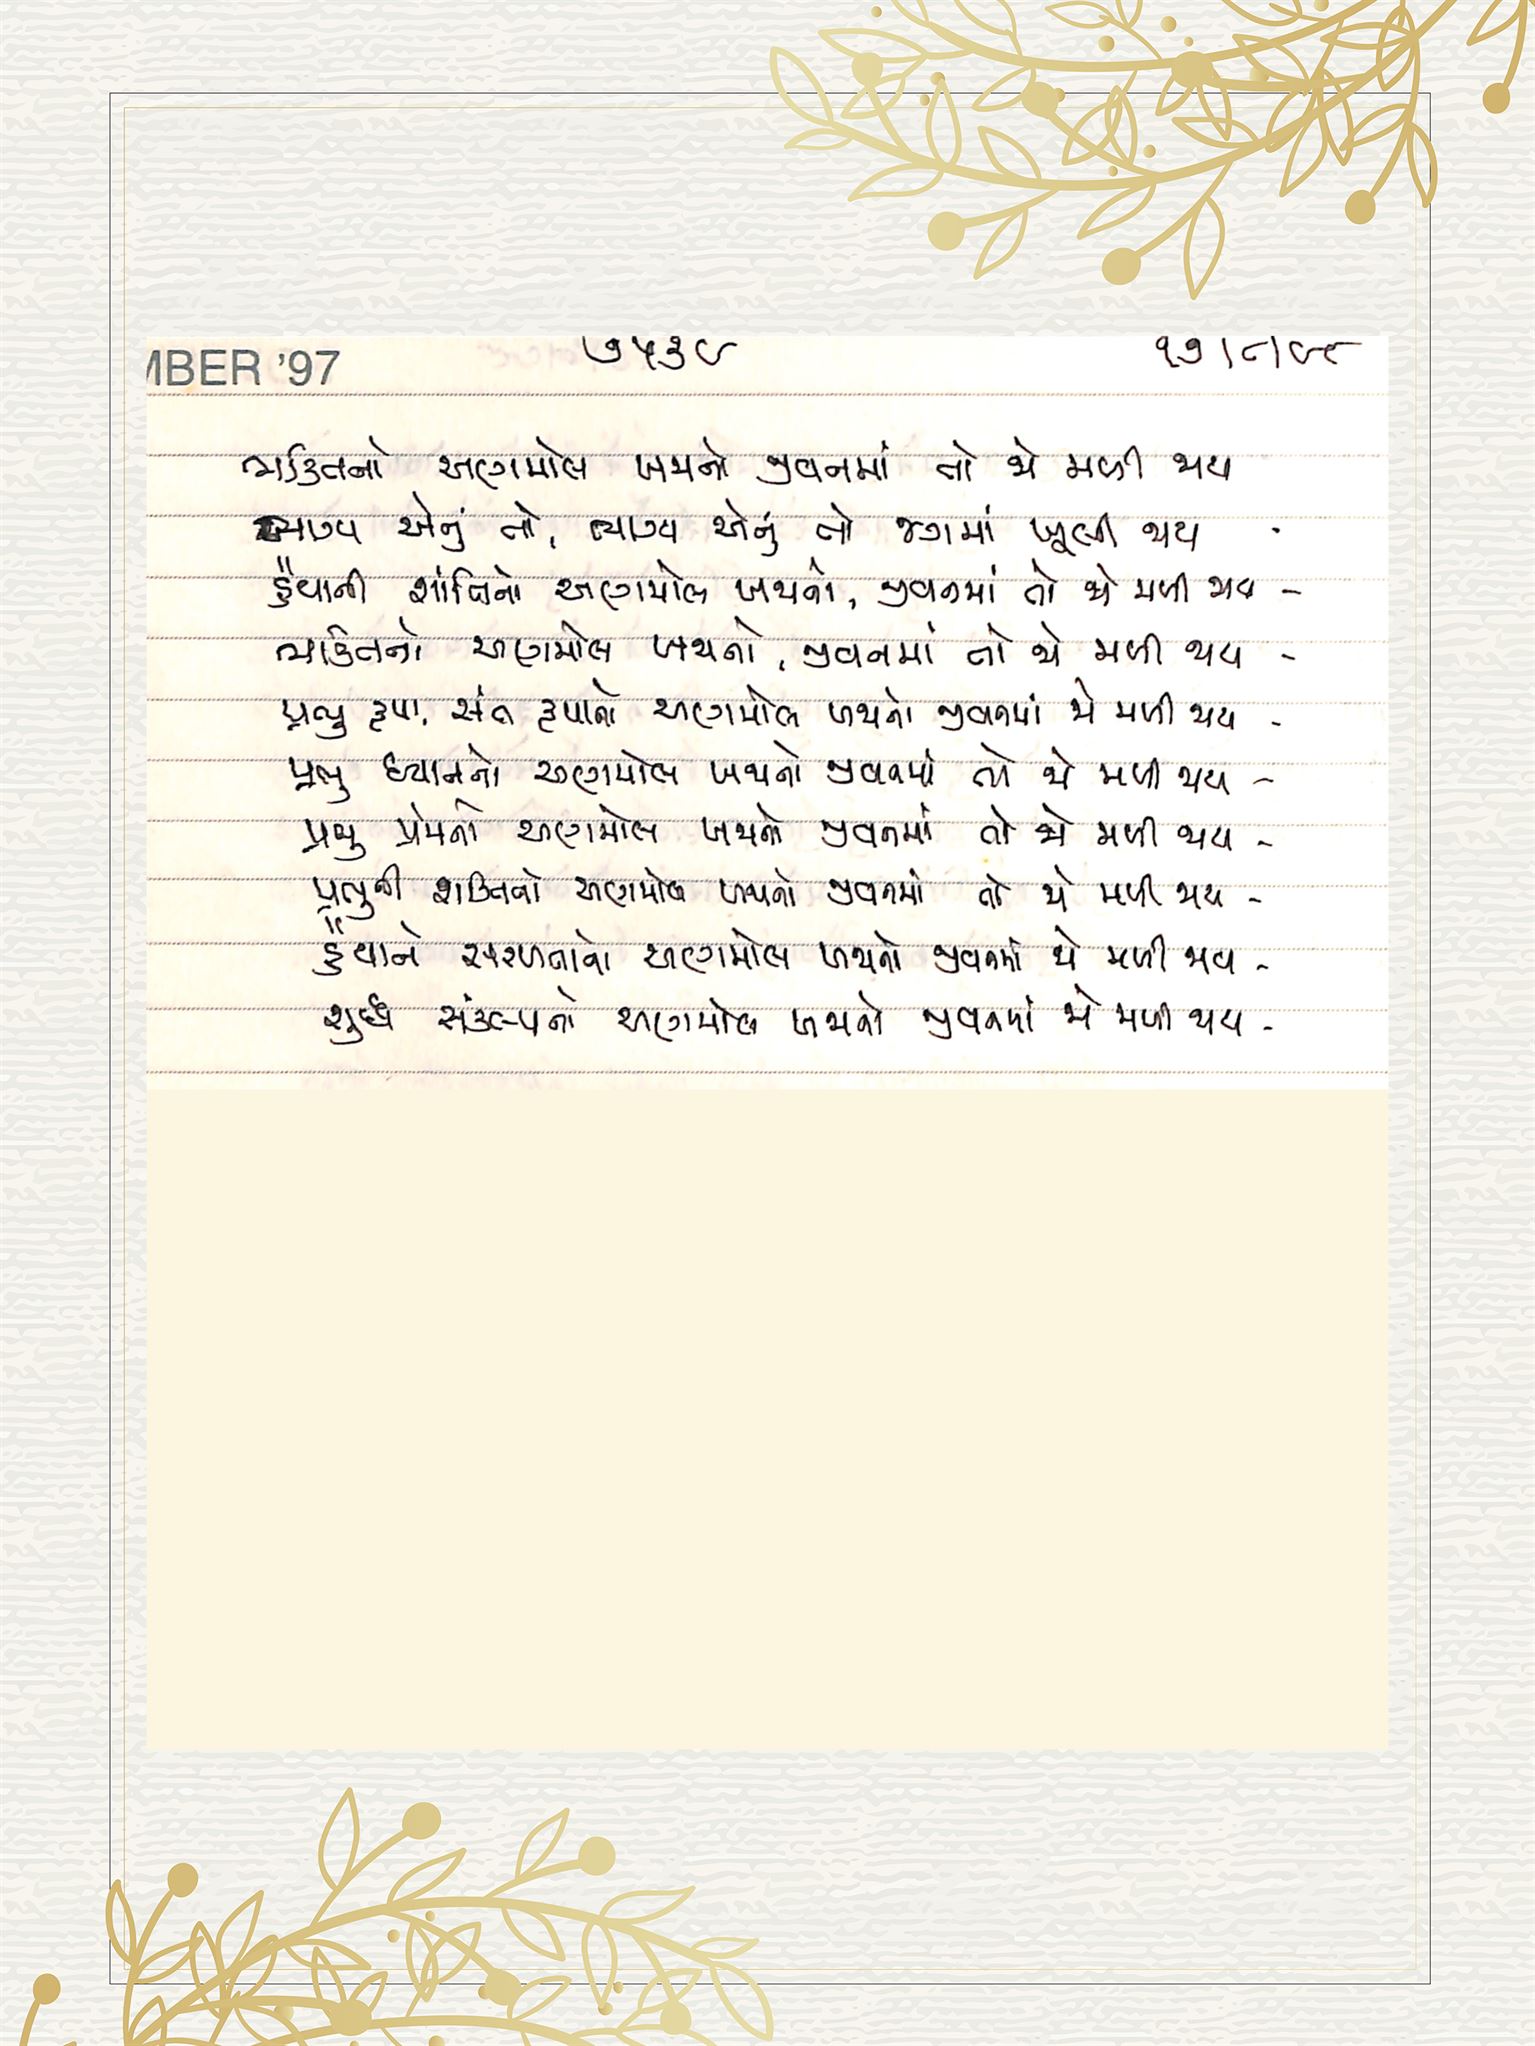 MBER '97 ૭૫૩૯ ૧૭/૮/૯૮
ભક્તિનો અણમોલ ખજાનો જીવનમાં તો જે મળી જાય
ભાગ્ય એનું તો, ભાગ્ય એનું તો જગમાં ખૂલી જાય
હૈયાની શાંતિનો અણમોલ ખજાનો, જીવનમાં તો જે મળી જાય -
ભક્તિનો અણમોલ ખજાનો, જીવનમાં તો જે મળી જાય -
પ્રભુ કૃપા, સંત કૃપાનો અણમોલ ખજાનો જીવનમાં જે મળી જાય -
પ્રભુ ધ્યાનનો અણમોલ ખજાનો જીવનમાં તો જે મળી જાય -
પ્રભુ પ્રેમનો અણમોલ ખજાનો જીવનમાં તો જે મળી જાય -
પ્રભુની શક્તિનો અણમોલ ખજાનો જીવનમાં તો જે મળી જાય -
હૈયાને સરળતાનો અણમોલ ખજાનો જીવનમાં જે મળી જાય -
શુદ્ધ સંકલ્પનો અણમોલ ખજાનો જીવનમાં જે મળી જાય -